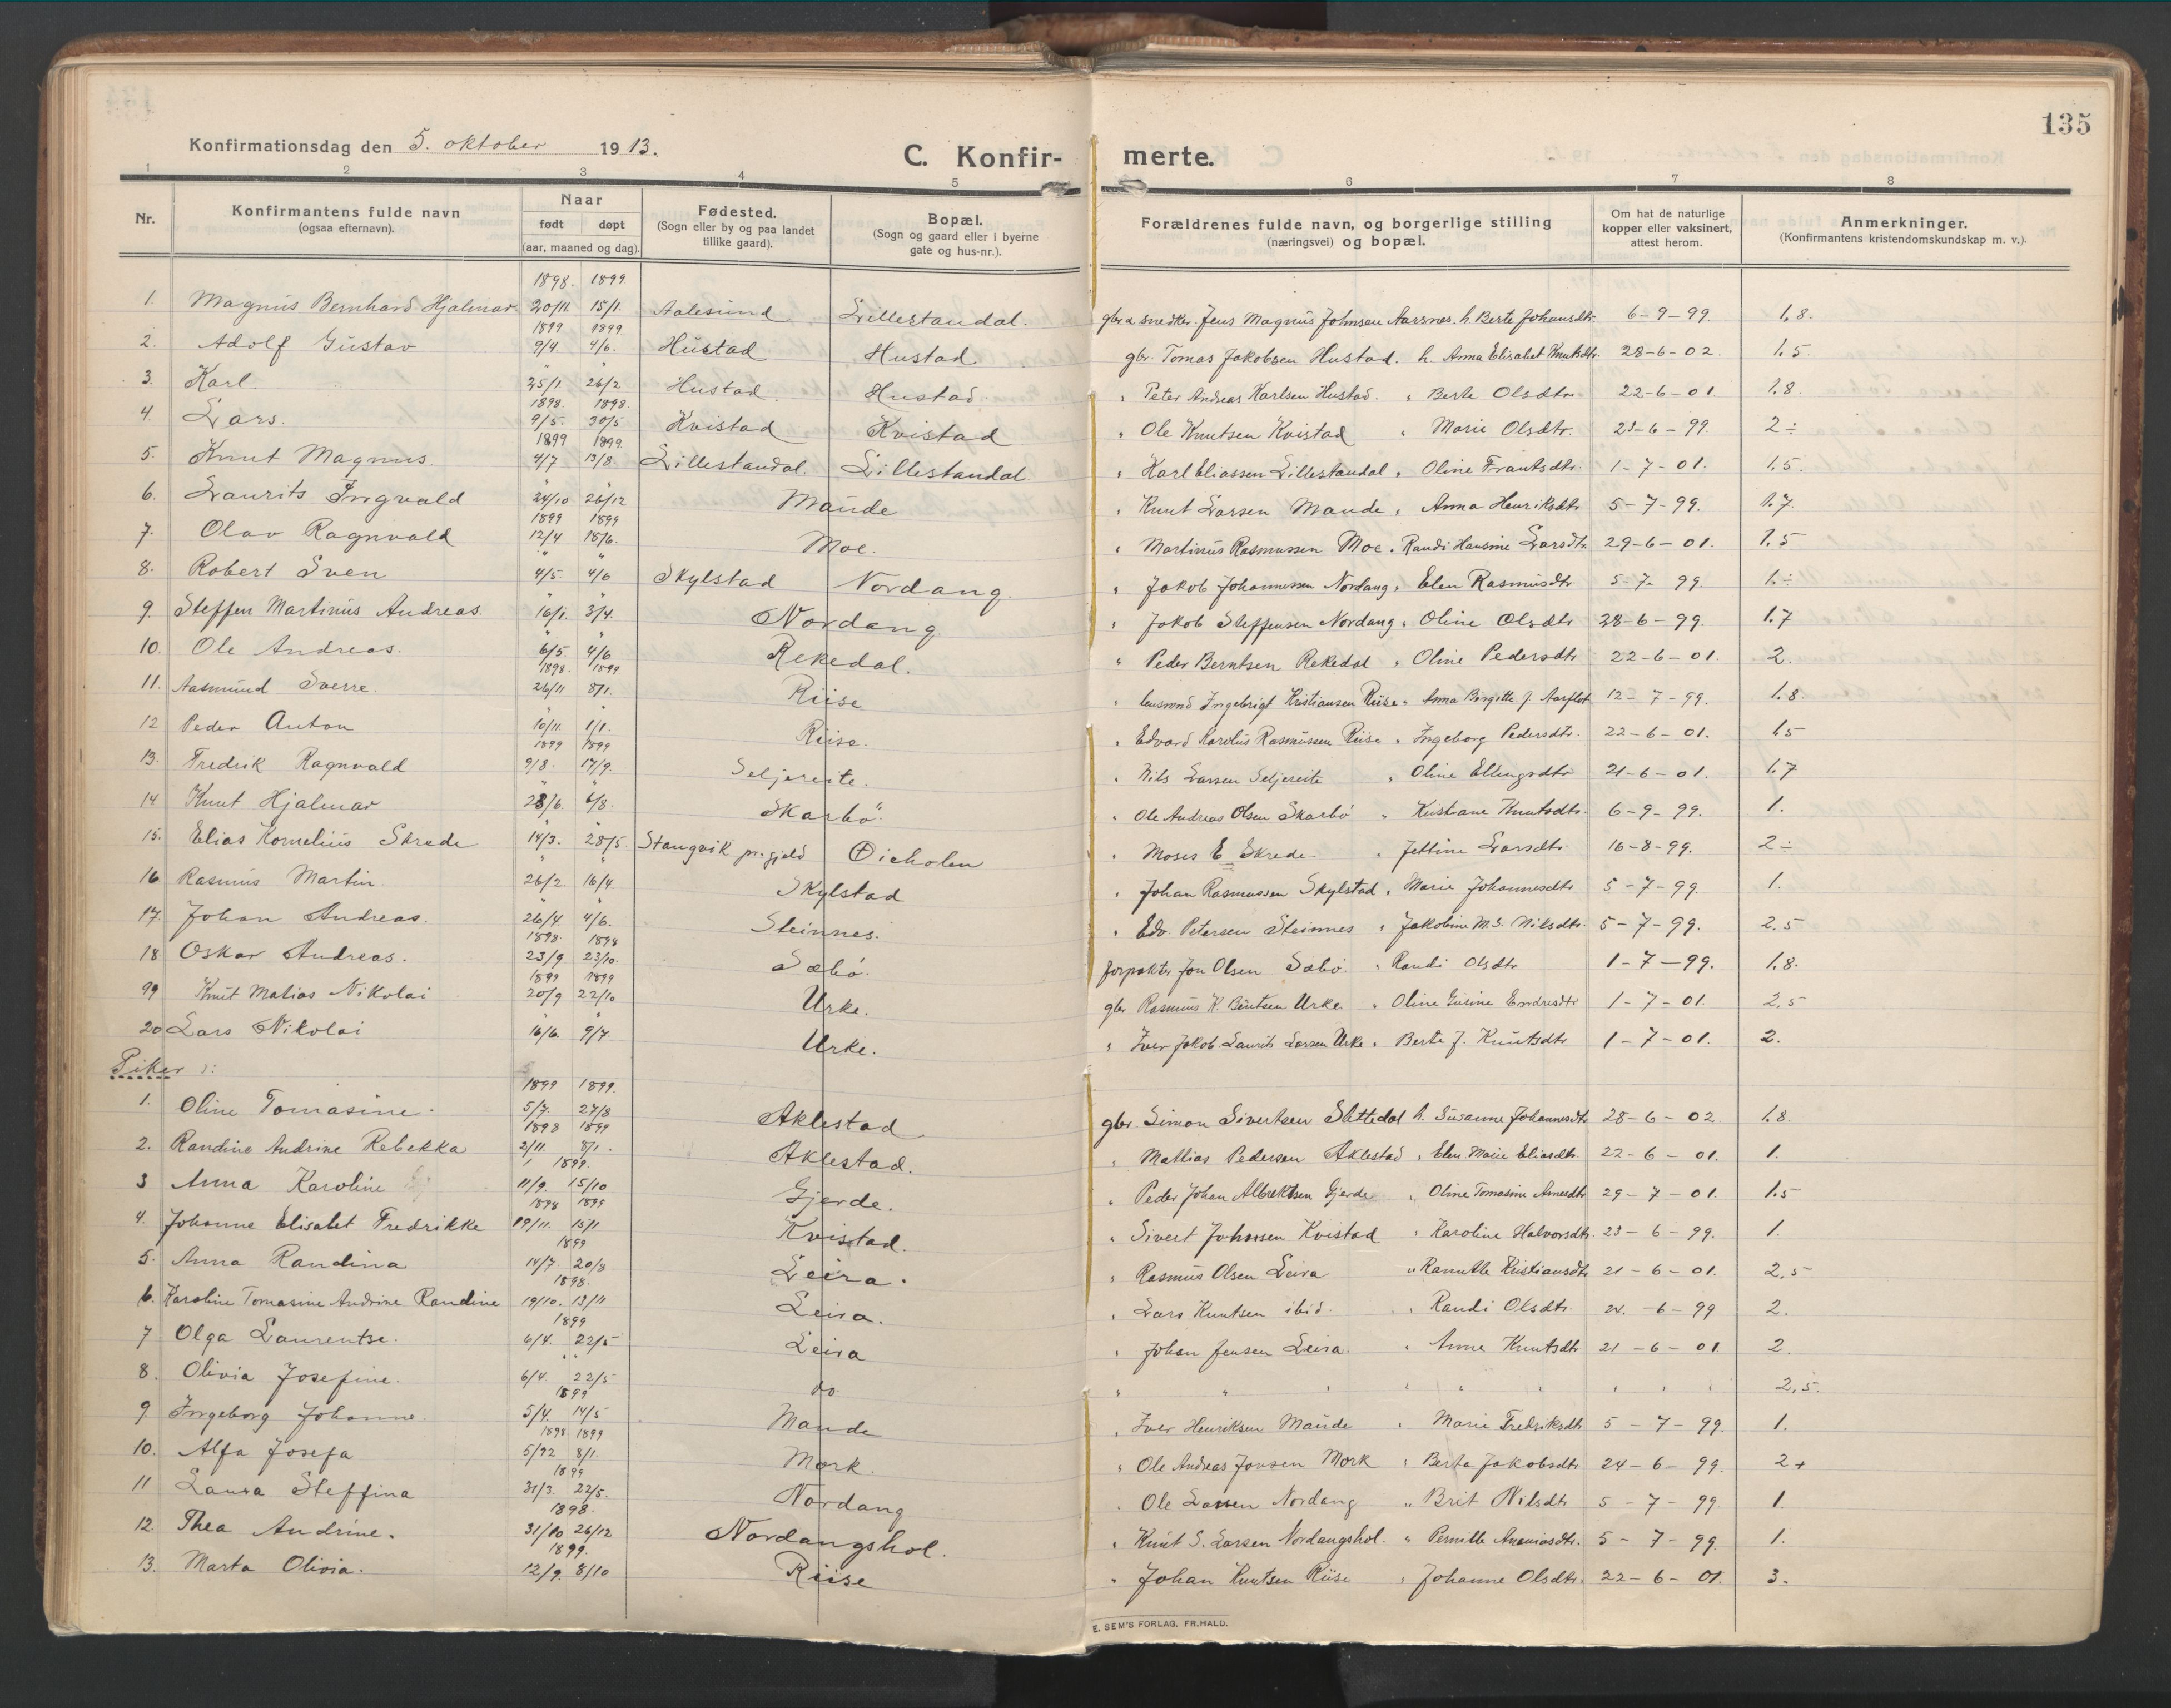 135
Konfirmationsdag den 5. oktober 1913.
C. Konfir- merte.
1 2 3 4 5 6 7 8
Nr.
Konfirmantens fulde navn (ogsaa efternavn).
Naar født døpt (aar, maaned og dag).
Fødested. (Sogn eller by og paa landet tillike gaard).
Bopæl. (Sogn og gaard eller i byerne gate og hus-nr.).
Forældrenes fulde navn, og borgerlige stilling (næringsvei) og bopæl.
Om hat de naturlige kopper eller vaksinert, attest herom.
Anmerkninger. (Konfirmantens kristendomskundskap m. v.).
1898. 1899
1. Magnus Bernhard Hjalmar 20/11. 15/1. Aalesund Lillestandal. gbr & snedker. Jens Magnus Johnsen Aarsnes. h. Berte Johansdtr. 6-9-99. 1,8.
1899 1899
2. Adolf Gustav 9/4. 4/6. Hustad Hustad gbr. Tomas Jakobsen Hustad. h. Anna Elisabet Knutsdtr. 28-6-02. 1.5.
" "
3. Karl. 25/1. 26/2 Hustad. Hustad " Peter Andreas Karlsen Hustad. " Berte Olsdtr. 22-6-01. 1.8.
1898. 1898.
4. Lars. 9/5. 30/5 Kvistad Kvistad " Ole Knutsen Kvistad " Marie Olsdtr. 23-6-99. 2 ÷
1899 1899.
5. Knut Magnus. 4/7 13/8. Lillestandal. Lillestandal. " Karl Eliassen Lillestandal " Oline Frantsdtr. 1-7-01. 1.5.
" "
6. Laurits Ingvald 24/10 26/12 Maude " Knut Larsen Maude " Anna Henriksdtr 5-7-99. 1.7.
1899 1899
7. Olav Ragnvald 12/4 18/6. Moe. " Martinus Rasmussen Moe " Randi Hansine Larsdtr 29-6-01. 1.5
" "
8. Robert Sven 4/5. 4/6 Skylstad Nordang. " Jakob Johannessen Nordang " Elen Rasmusdtr 5-7-99. 1.÷
" "
9. Steffen Martinus Andreas. 16/1. 3/4. Nordang " Jakob Steffensen Nordang " Oline Olsdtr 28-6-99. 1.7
" "
10. Ole Andreas. 6/5. 4/6 Rekedal. " Peder Berntsen Rekedal " Oline Pedersdtr 22-6-01. 2.
1898. 1899
11. Aasmund Sverre. 26/11 8/1. Riise " lensmand Ingebrigt Kristiansen Riise " Anna Birgitte J. Aarflot 12-7-99. 1.8.
" "
12 Peder Anton 10/11. 1/1. Riise. " Edvard Karolus Rasmussen Riise " Ingeborg Pedersdtr. 22-6-01. 1.5
1899 1899
13. Fredrik Ragnvald 9/8. 17/9. Seljereite. " Nils Larsen Seljereite " Oline Ellingsdtr 21-6-01. 1.7
" "
14 Knut Hjalmar 28/6. 6/8. Skarbö. " Ole Andreas Olsen Skarbö " Kristiane Knutsdtr. 6-9-99. 1.
" "
15. Elias Kornelius Skrede 14/3. 28/5. Stangvik pr.gjeld Öieholen " Moses E. Skrede. " Jettine Larsdtr. 16-8-99. 2 ÷
" "
16 Rasmus Martin. 26/2. 16/4. Skylstad " Johan Rasmussen Skylstad " Marie Johannesdtr 5-7-99. 1.
" "
17. Johan Andreas. 26/4. 4/6. Steinnes. " Edv. Petersen Steinnes " Jakobine M.S. Nilsdtr. 5-7-99. 2.5
1898. 1898
18 Oskar Andreas. 23/9 23/10. Sæbö. forpakter Jon Olsen Sæbö. " Randi Olsdtr 1-7-99. 1.8.
1899 1899
19 Knut Matias Nikolai 20/9 22/10 Urke. gbr Rasmus K. Bentsen Urke. " Oline Gurine Endresdtr 1-7-01. 2,5
" "
20 Lars Nikolai 16/6. 9/7. Urke. " Iver Jakob Laurits Larsen Urke " Berte J. Knutsdtr 1-7-01. 2.
Piker :
1899 1899.
1. Oline Tomasine. 5/7. 27/8 Aklestad gbr. Simon Sivertsen Slettedal h. Susanne Johannesdtr 28-6-02. 1.8.
1898 1899
2. Randine Andrine Rebekka 2/11. 8/1. Aklestad. " Mattias Pedersen Aklestad " Elen Marie Eliasdtr. 22-6-01. 1.
1899.
3 Anna Karoline 11/9. 15/10 Gjerde. " Peder Johan Albrektsen Gjerde " Oline Tomasine Arnesdtr 29-7-01. 1.5
1898 1899
4. Johanne Elisabet Fredrikke 19/11. 15/1 Kvistad. " Sivert Johnsen Kvistad " Karoline Halvorsdtr. 23-6-99. 1.
1899
5. Anna Randina 14/7. 20/8 Leira. " Rasmus Olsen Leira " Ranuthe Kristiansdtr 21-6-01. 2,5
1898.
6. Karoline Tomasine Andrine Randine 19/10. 13/11 Leira. " Lars Knutsen ibid. " Randi Olsdtr. 24.-6-99 2.
1899
7 Olga Laurentse. 6/4. 22/5 Leira " Johan Jensen Leira. " Anne Knutsdtr 21-6-01. 2.
" "
8. Olivia Josefine. 6/4. 22/5 do. " " " " " " " " " 2,5.
1899
9. Ingeborg Johanne. 5/4. 14/5 Maude " Iver Henriksen Maude " Marie Fredriksdtr 5-7-99. 1.
1898. 1899
10. Alfa Josefa 5/12 8/1. Mork. " Ole Andreas Jonsen Mork " Berte Jakobsdtr. 24-6-99. 2+
1899
11 Laura Steffina 31/3. 22/5. Nordang " Ole Larsen Nordang " Brit Nilsdtr 5-7-99. 1.
1898.
12. Thea Andrine. 31/10 26/12 Nordangshol. " Knut S. Larsen Nordangshol. " Pernille Ananiasdtr. 5-7-99. 1.
1899.
13. Marta Olivia. 12/9. 8/10 Riise " Johan Knutsen Riise " Johanne Olsdtr. 22-6-01. 3.
E. SEM'S FORLAG, FR.HALD.